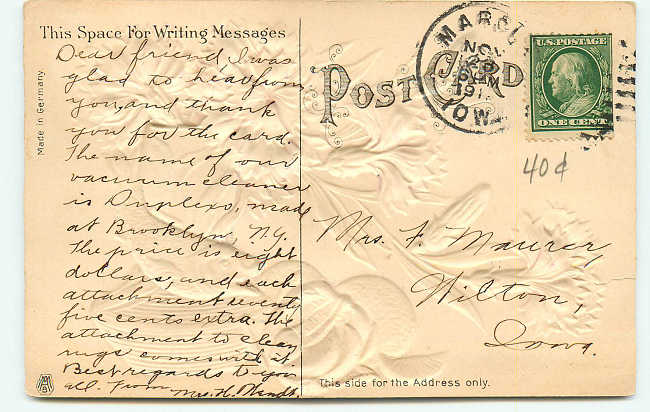 This Space For Writing Messages
Dear friend, I was
glad to hear from
you, and thank
you for the card.
The name of our
vacuum cleaner
is Duplexo, made
at Brooklyn, N.Y.
The price is eight
dollars, and each
attachment seventy
five cents extra. The
attachment to clean
rugs comes with it.
Best regards to you
all. From Mrs. H.
Made in Germany.
POST CARD
NOV
IOWA
U.S. POSTAGE
ONE CENT
40¢
Mrs. F. Maurer,
Wilton,
Iowa.
This side for the Address only.